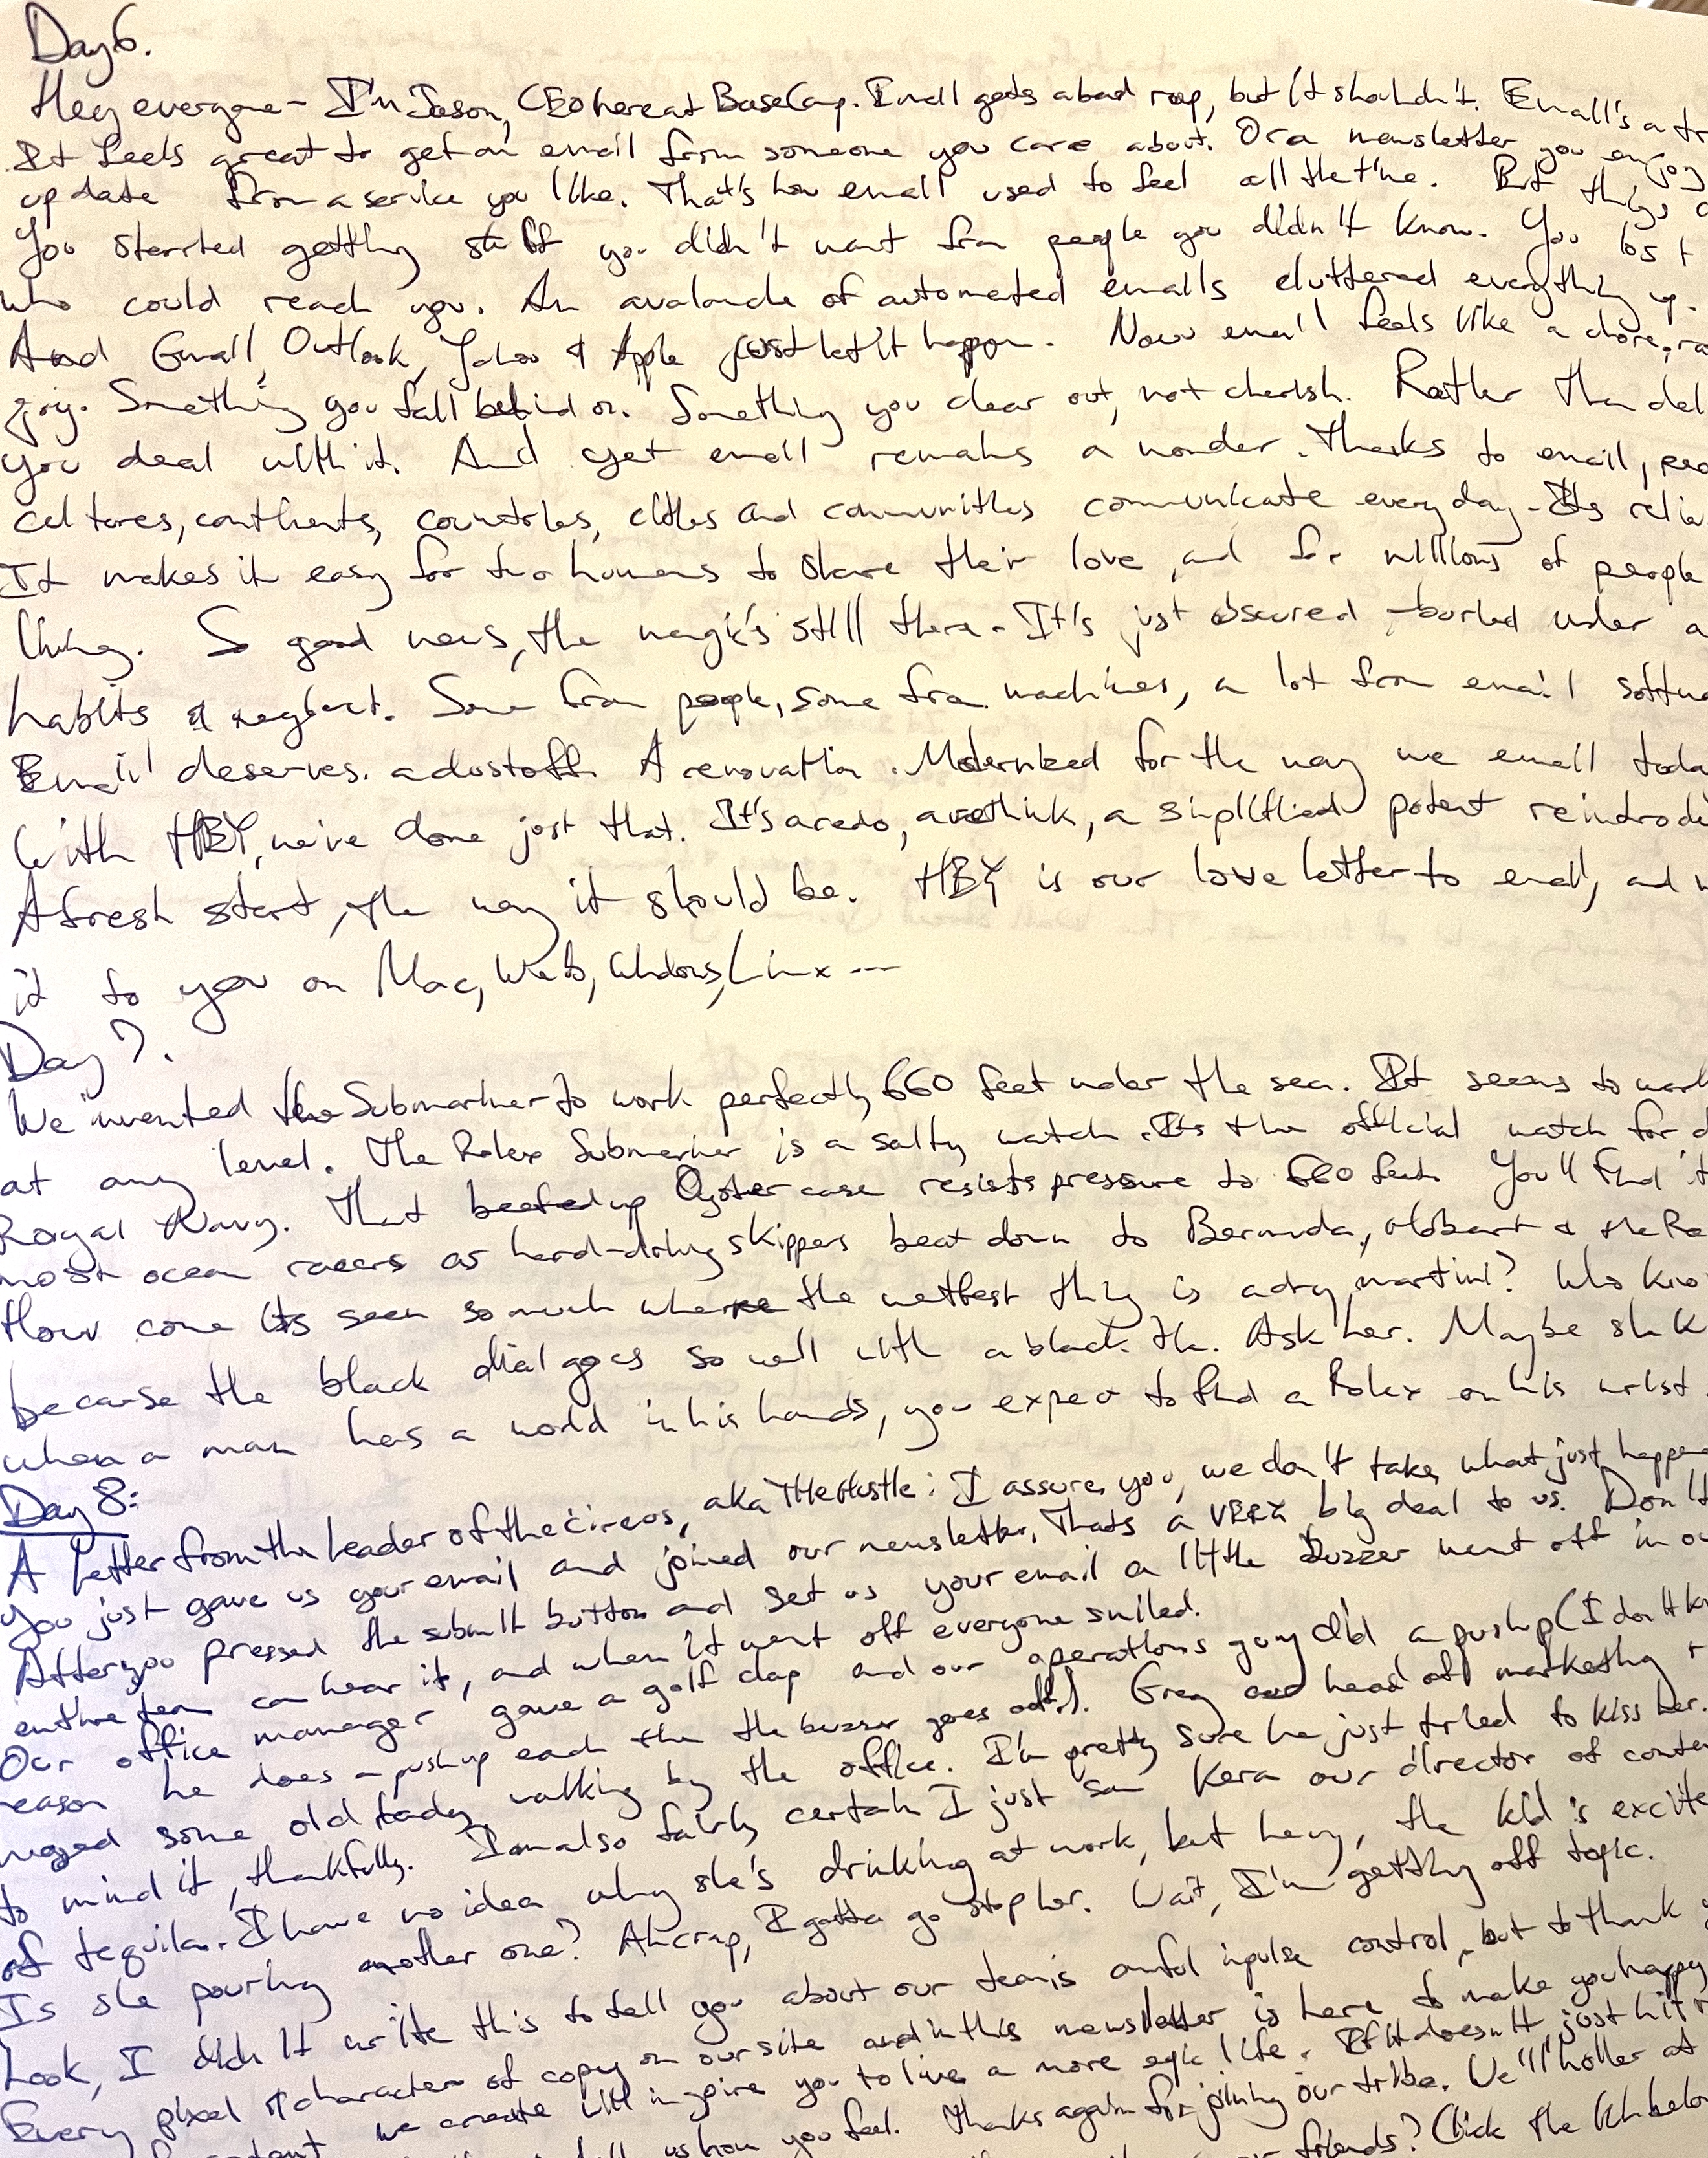 Day 6.
Hey everyone - I'm Jason, CEO here at BaseCamp. Email gets a bad rap, but it shouldn't. Email's a tr
It feels great to get an email from someone you care about. Or a newsletter you enjoy
update from a service you like. That's how email used to feel all the time. But things c
You started getting stuff you didn't want from people you didn't know. You lost
who could reach you. An avalanche of automated emails cluttered everything up.
And Gmail, Outlook, Yahoo & Apple just let it happen. Now email feels like a chore, ra
joy. Something you fall behind on. Something you clear out, not cherish. Rather than del
you deal with it. And yet email remains a wonder. Thanks to email, peo
cultures, continents, countries, cities and communities communicate every day. Its relia
It makes it easy for two humans to share their love, and for millions of people
living. So good news, the magic's still there. It's just obscured - buried under a
habits & neglect. Some from people, some from machines, a lot from email softwa
Email deserves a dustoff. A renovation. Modernized for the way we email toda
With HEY, we've done just that. It's a redo, a rethink, a simplified potent reintrodu
A fresh start, the way it should be. HEY is our love letter to email, and w
it to you on Mac, Web, Windows, Linux ---
Day 7.
We invented the Submariner to work perfectly 660 feet under the sea. It seems to work
at any level. The Rolex Submariner is a salty watch. Its the official watch for d
Royal Navy. That beefed up Oyster case resists pressure to 660 feet. You'll find it
most ocean racers as hard-driving skippers beat down to Bermuda, Hobart & the Ra
How come its seen so much where the wettest thing is a dry martini? Who kno
because the black dial goes so well with a black tie. Ask her. Maybe she k
when a man has a world in his hands, you expect to find a Rolex on his wrist.
Day 8:
A Letter from the Leader of the circus, aka The Hustle: I assure you, we don't take what just happen
You just gave us your email and joined our newsletter. Thats a VERY big deal to us. Don't
After you pressed the submit button and set us your email a little buzzer went off in ou
entire team can hear it, and when it went off everyone smiled.
Our office manager gave a golf clap and our operations guy did a pushup (I don't kn
reason he does a pushup each time the buzzer goes off). Greg our head of marketing r
nuged some old lady walking by the office. I'm pretty sure he just tried to kiss her.
to mind it, thankfully. I am also fairly certain I just saw Kera our director of conte
of tequila. I have no idea why she's drinking at work, but hey, the kid's excite
Is she pouring another one? Ah crap, I gotta go stop her. Wait, I'm getting off topic.
Look, I didn't write this to tell you about our team's awful inpulse control, but to thank y
Every pixel & character of copy on our site and in this newsletter is here to make you happy
we create will inspire you to live a more epic life. If it doesn't just hit r
us how you feel. Thanks again for joining our tribe. We'll holler at
friends? Click the link below